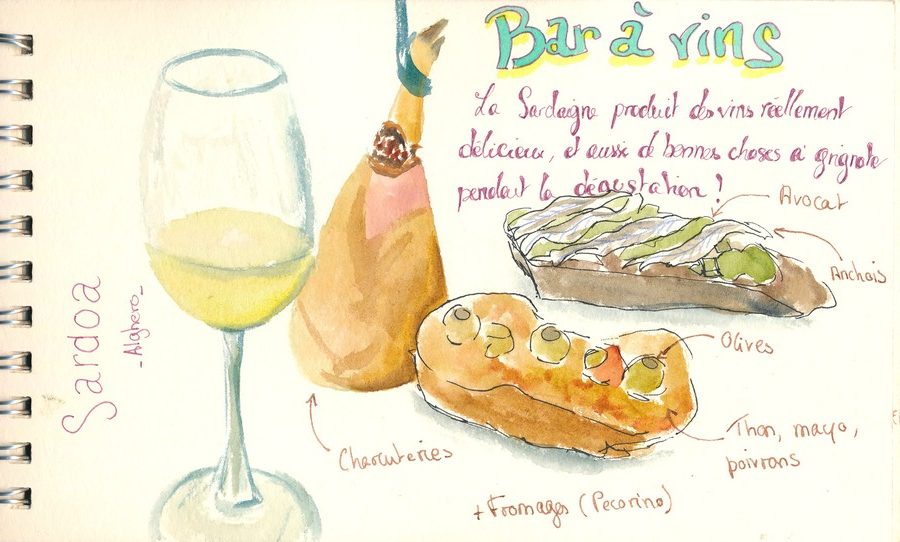 Bar à vins
La Sardaigne produit des vins réellement
délicieux, et aussi de bonnes choses à grignoter
pendant la dégustation !
Avocat
Anchois
Sardoa
- Alghero -
Olives
Charcuteries
Thon, mayo,
poivrons
+ Fromages (Pecorino)